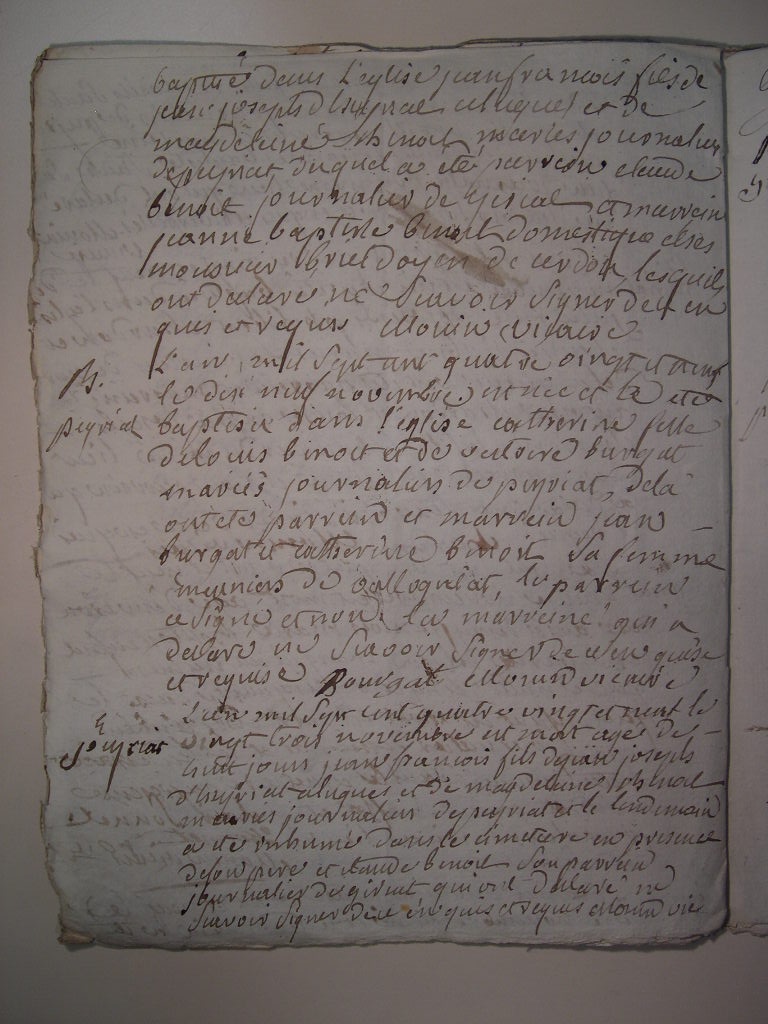 baptisé dans l'eglise jean francois fils de
jean joseph d'huyriat et de
magdeleine mariés journaliers
de peyriat duquel a eté parrein claude
benoit journalier de giriat et marrein
jeanne baptiste benoit domestique chés
monsieur doyen de cerdon lesquels
ont declaré ne scavoir signer de ce en
quis et requis Morin vicaire
B.
peyriat
L'an mil sept cent quatre vingt et neuf
le dix neuf novembre est née et a eté
baptisée dans l'eglise catherine fille
de louis benoit et de burgat
mariés journaliers de peyriat, dela
ont eté parrein et marrein jean
burgat et catherine benoit sa femme
meuniers de le parrein
a signé et non la marreine qui a
declaré ne scavoir signer de ce en quise
et requise Bourgat Morin vicaire
E
peyriat
L'an mil sept cent quatre vingt et neuf le
vingt trois novembre est mort agé de
huit jours jean francois fils de jean joseph
d'huyriat et de magdeleine
mariés journaliers de peyriat et le lendemain
a eté inhumé dans le cimetiere en presence
de son pere et claude benoit son parrein
journalier de giriat qui ont declaré ne
scavoir signer de ce enquis et requis Morin vic